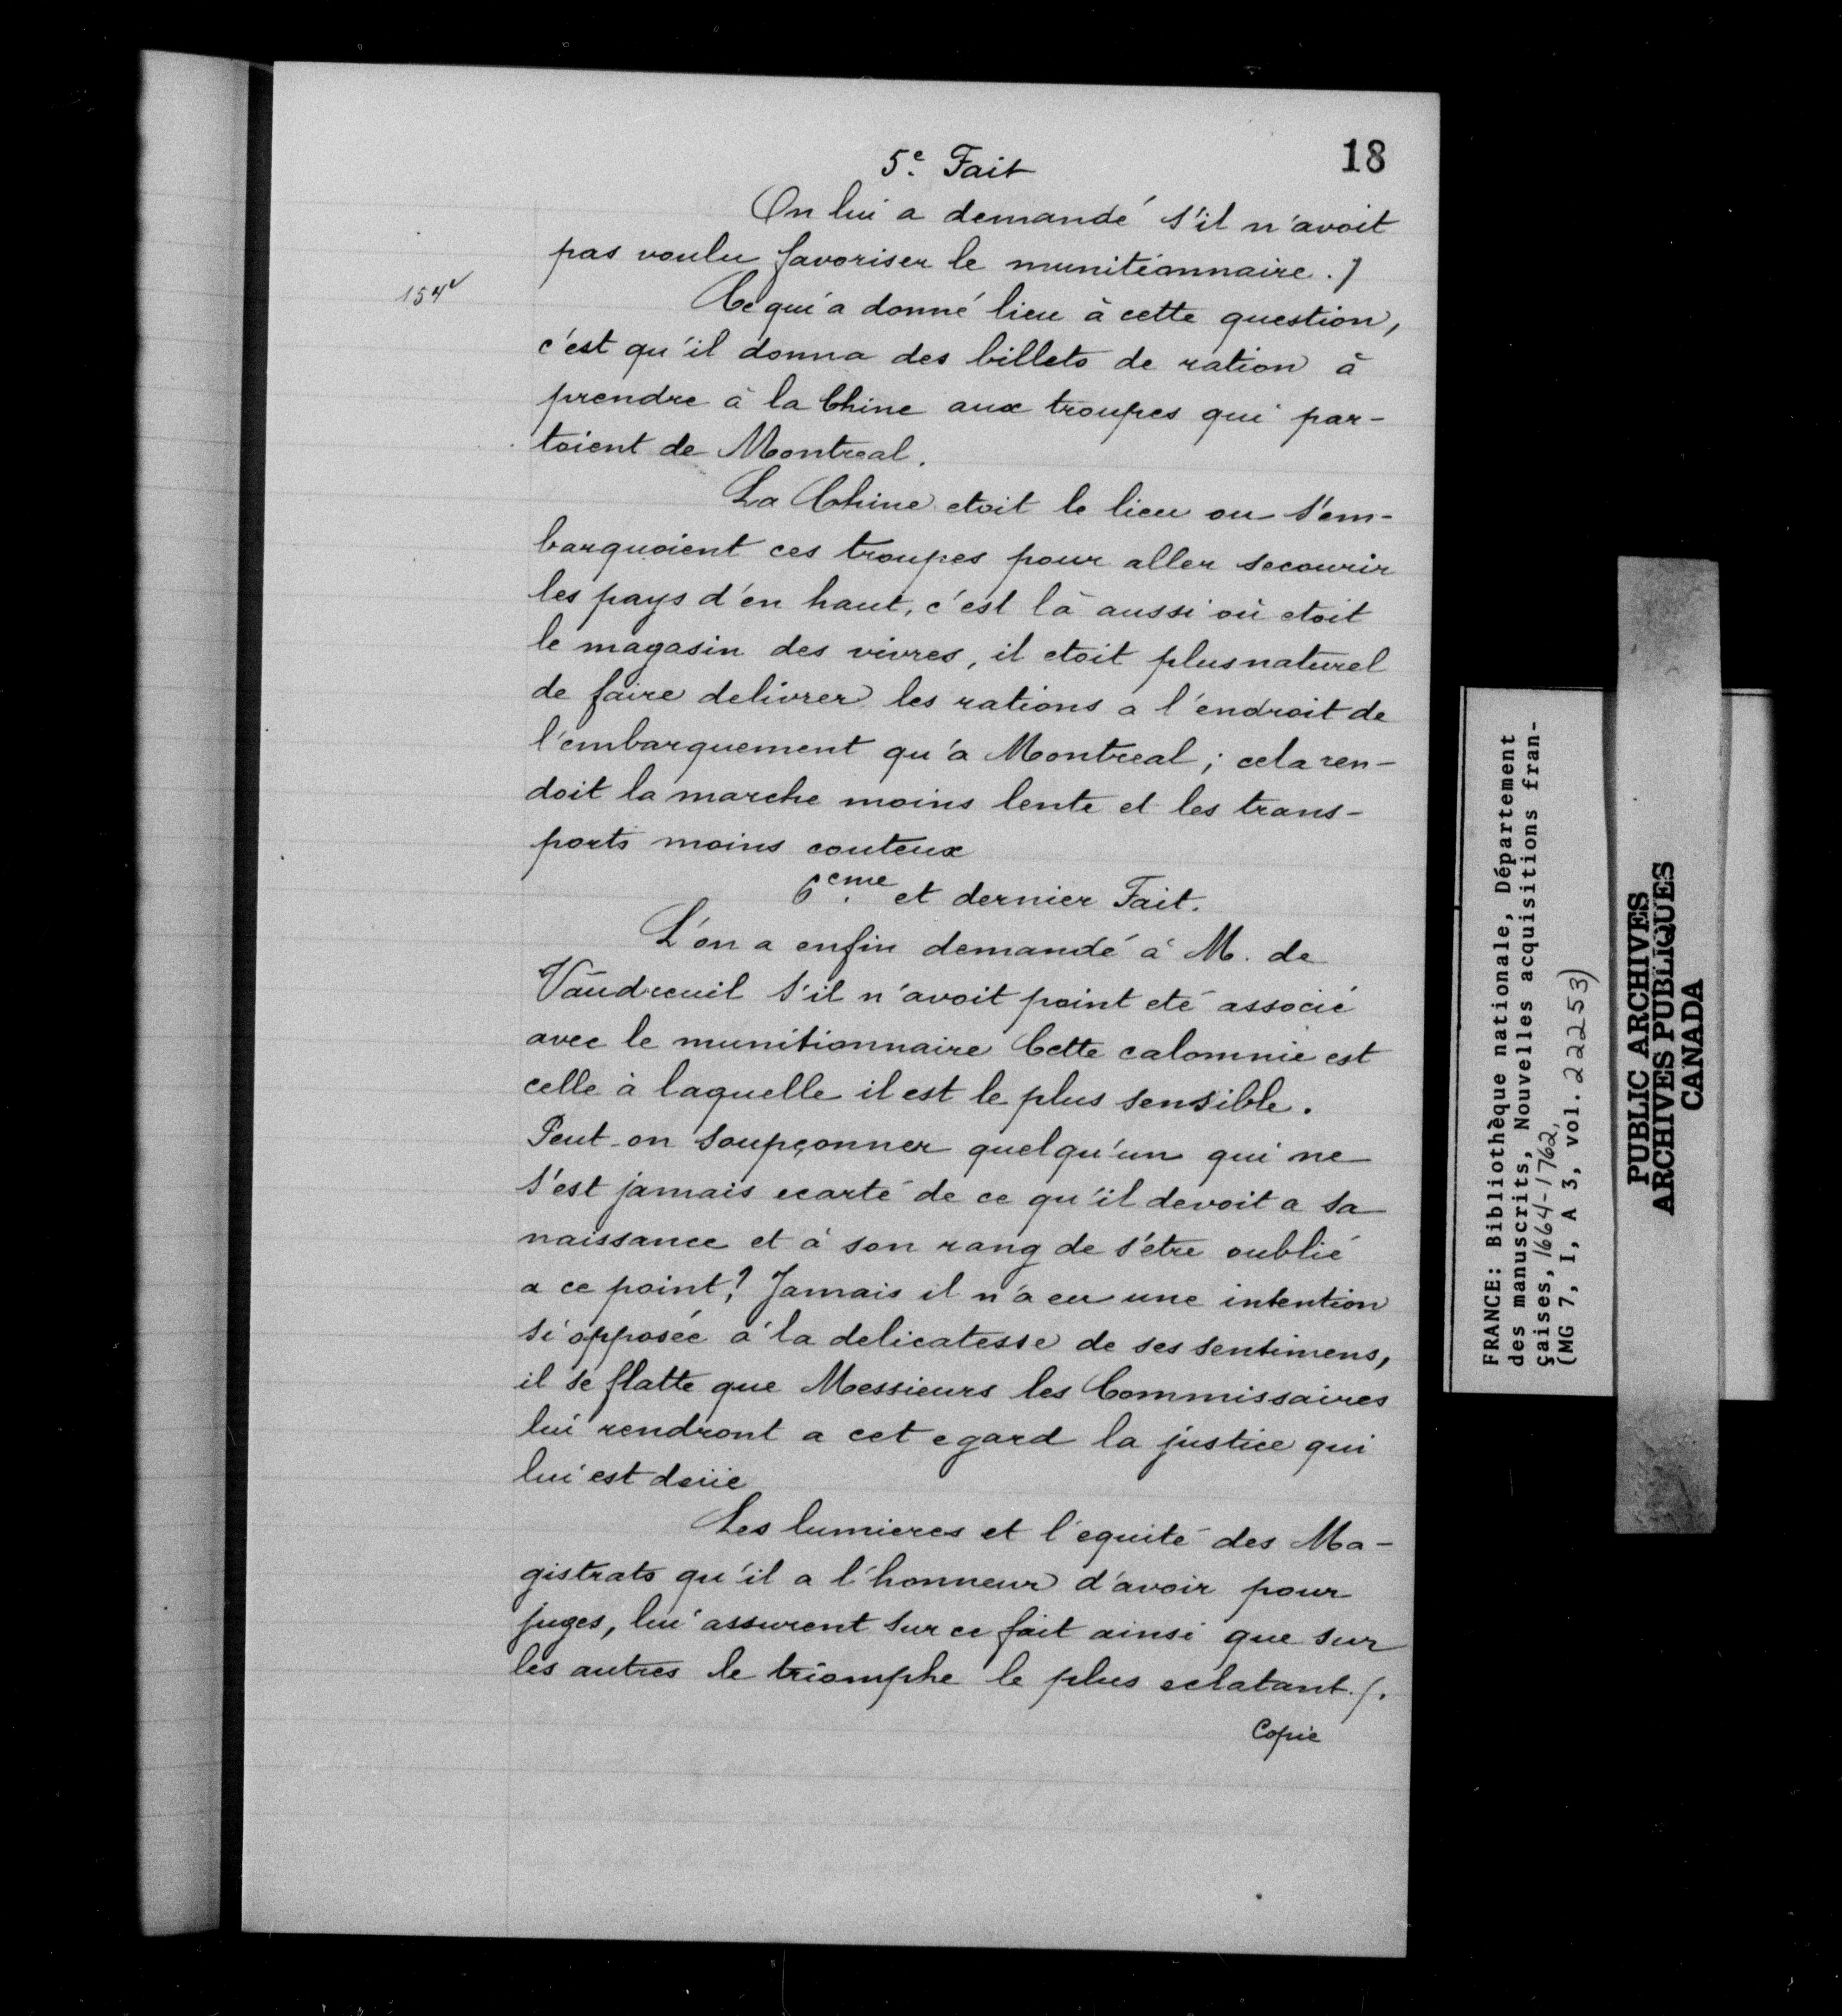 18
5e. Fait
On lui a demandé s'il n'avoit
pas voulu favoriser le munitionnaire.]
154v
Ce qui a donné lieu à cette question,
c'est qu'il donna des billets de ration à
prendre à la Chine aux troupes qui par-
toient de Montreal.
La Chine etoit le lieu ou s'em-
barquoient ces troupes pour aller secourir
les pays d'en haut, c'est là aussi où etoit
le magasin des vivres, il etoit plus naturel
de faire delivrer les rations a l'endroit de
l'embarquement qu'a Montreal ; cela ren-
doit la marche moins lente et les trans-
ports moins couteux
6eme. et dernier Fait.
L'on a enfin demandé à M. de
Vaudreuil s'il n'avoit point eté associé
avec le munitionnaire Cette calomnie est
celle à laquelle il est le plus sensible.
Peut-on soupçonner quelqu'un qui ne
s'est jamais ecarté de ce qu'il devoit a sa
naissance et à son rang de s'etre oublié
a ce point? Jamais il n'a eu une intention
si opposée à la delicatesse de ses sentimens,
il se flatte que Messieurs les Commissaires
lui rendront a cet egard la justice qui
lui est deüe
Les lumieres et l'equité des Ma-
gistrats qu'il a l'honneur d'avoir pour
juges, lui assurent sur ce fait ainsi que sur
les autres le triomphe le plus eclatant./.
Copie
FRANCE: Bibliothèque nationale, Département
des manuscrits, Nouvelles acquisitions fran-
çaises, 1664-1762,
(MG 7, I, A 3, vol. 22253)
PUBLIC ARCHIVES
ARCHIVES PUBLIQUES
CANADA